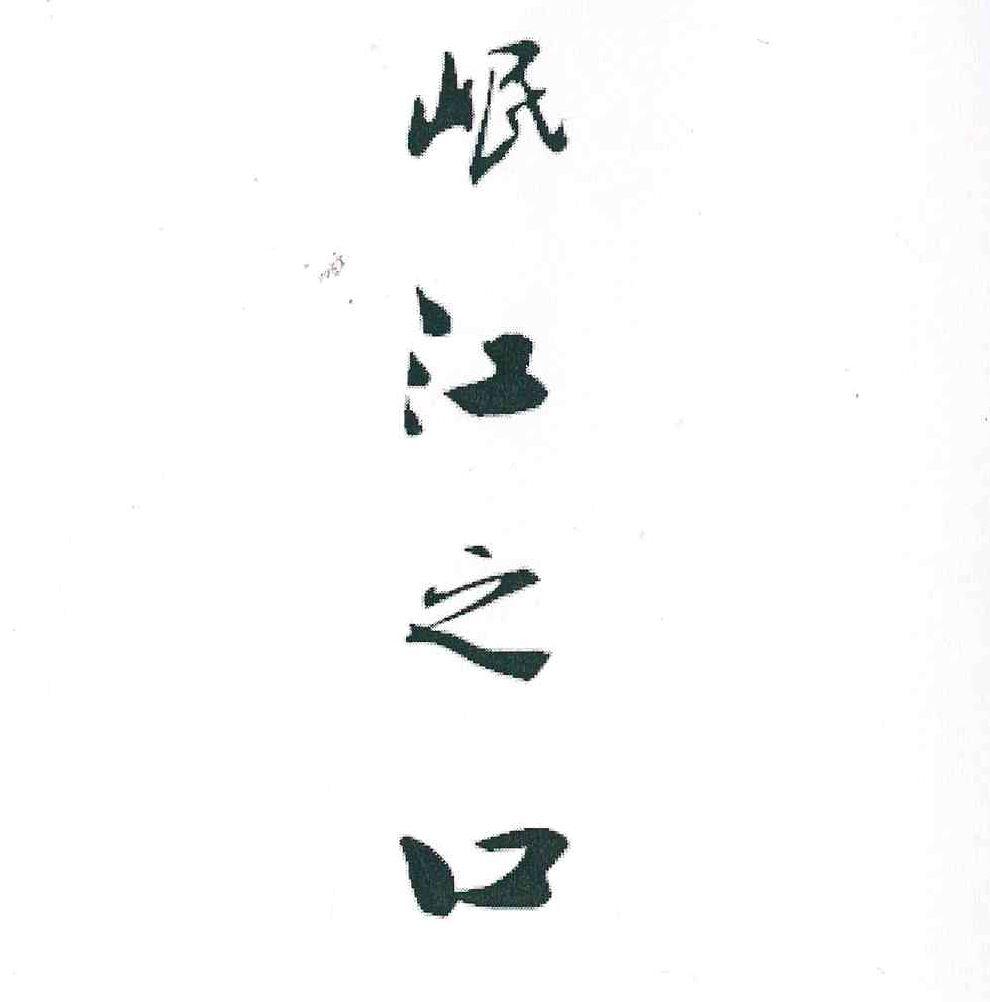 岷江之口